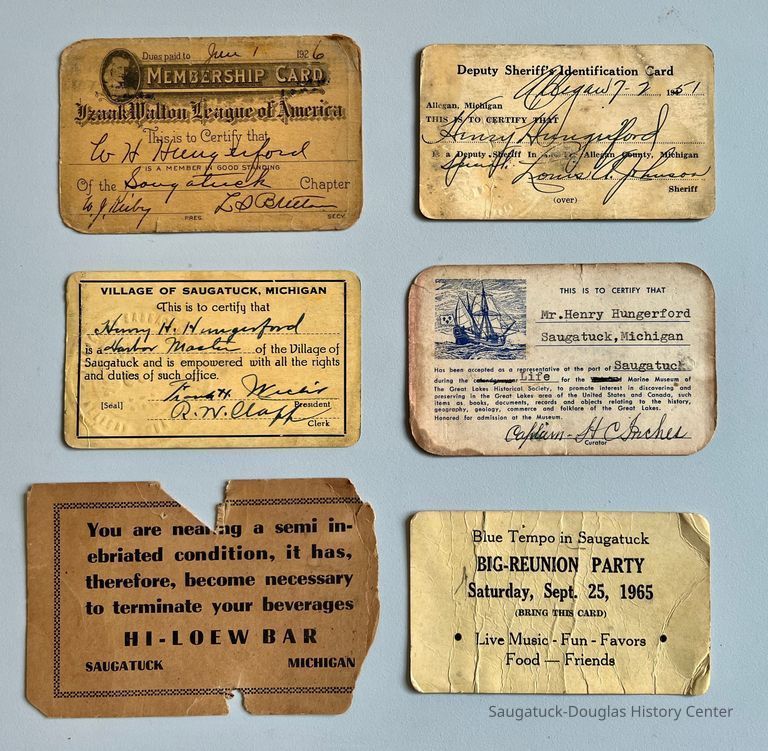 Dues paid to June 1 1926
MEMBERSHIP CARD
Izaak Walton League of America
This is to Certify that
W H Hungerford
IS A MEMBER IN GOOD STANDING
Of the Saugatuck Chapter
PRES.
SECY.
Deputy Sheriff's Identification Card
Allegan 7-2 1951
Allegan, Michigan
THIS IS TO CERTIFY THAT
Henry Hungerford
is a Deputy Sheriff In Allegan County, Michigan
Louis A. Johnson
Sheriff
(over)
VILLAGE OF SAUGATUCK, MICHIGAN
This is to certify that
Henry H. Hungerford
is a Harbor Master of the Village of
Saugatuck and is empowered with all the rights
and duties of such office.
[Seal] President
R. W. Clapp
Clerk
THIS IS TO CERTIFY THAT
Mr. Henry Hungerford
Saugatuck, Michigan
Has been accepted as a representative at the port of Saugatuck
during the Life for the Marine Museum of
The Great Lakes Historical Society, to promote interest in discovering and
preserving in the Great Lakes area of the United States and Canada, such
items as books, documents, records and objects relating to the history,
geography, geology, commerce and folklore of the Great Lakes.
Honored for admission at the Museum.
Captain - H C Inches
Curator
You are nearing a semi in-
ebriated condition, it has,
therefore, become necessary
to terminate your beverages
HI-LOEW BAR
SAUGATUCK MICHIGAN
Blue Tempo in Saugatuck
BIG-REUNION PARTY
Saturday, Sept. 25, 1965
(BRING THIS CARD)
• Live Music - Fun - Favors •
Food — Friends
Saugatuck-Douglas History Center